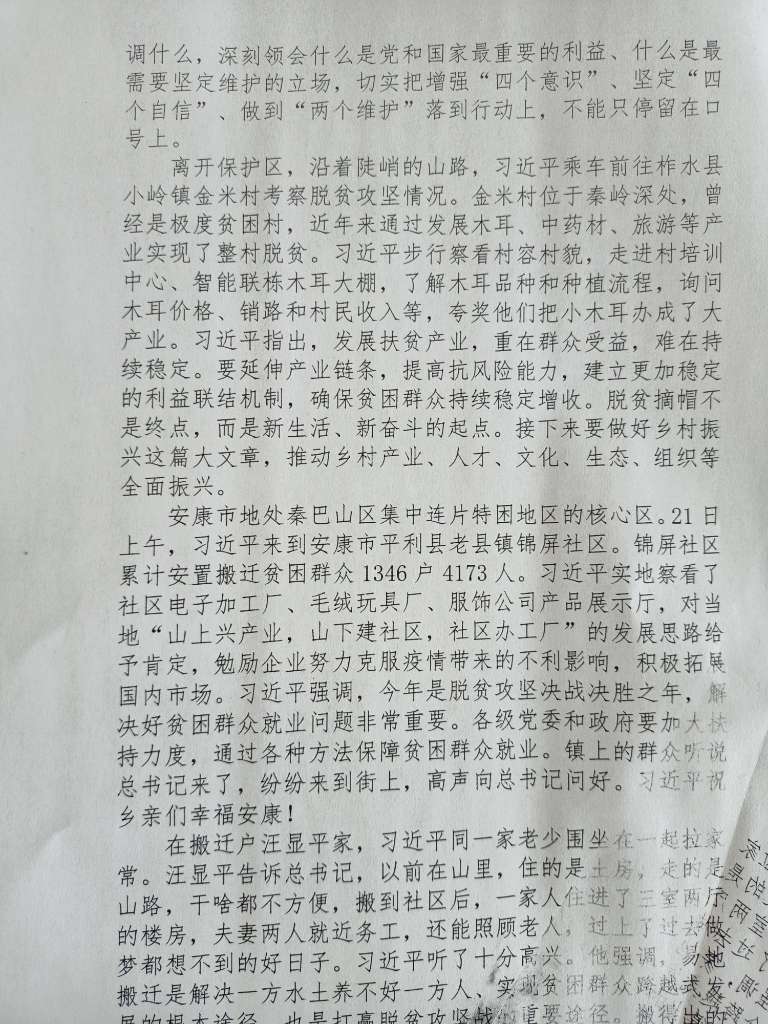 调什么，深刻领会什么是党和国家最重要的利益、什么是最
需要坚定维护的立场，切实把增强“四个意识”、坚定“四
个自信”、做到“两个维护”落到行动上，不能只停留在口
号上。
离开保护区，沿着陡峭的山路，习近平乘车前往柞水县
小岭镇金米村考察脱贫攻坚情况。金米村位于秦岭深处，曾
经是极度贫困村，近年来通过发展木耳、中药材、旅游等产
业实现了整村脱贫。习近平步行察看村容村貌，走进村培训
中心、智能联栋木耳大棚，了解木耳品种和种植流程，询问
木耳价格、销路和村民收入等，夸奖他们把小木耳办成了大
产业。习近平指出，发展扶贫产业，重在群众受益，难在持
续稳定。要延伸产业链条，提高抗风险能力，建立更加稳定
的利益联结机制，确保贫困群众持续稳定增收。脱贫摘帽不
是终点，而是新生活、新奋斗的起点。接下来要做好乡村振
兴这篇大文章，推动乡村产业、人才、文化、生态、组织等
全面振兴。
安康市地处秦巴山区集中连片特困地区的核心区。21日
上午，习近平来到安康市平利县老县镇锦屏社区。锦屏社区
累计安置搬迁贫困群众1346户4173人。习近平实地察看了
社区电子加工厂、毛绒玩具厂、服饰公司产品展示厅，对当
地“山上兴产业，山下建社区，社区办工厂”的发展思路给
予肯定，勉励企业努力克服疫情带来的不利影响，积极拓展
国内市场。习近平强调，今年是脱贫攻坚决战决胜之年，解
决好贫困群众就业问题非常重要。各级党委和政府要加大扶
持力度，通过各种方法保障贫困群众就业。镇上的群众听说
总书记来了，纷纷来到街上，高声向总书记问好。习近平祝
乡亲们幸福安康！
在搬迁户汪显平家，习近平同一家老少围坐在一起拉家
常。汪显平告诉总书记，以前在山里，住的是土房，走的是
山路，干啥都不方便，搬到社区后，一家人住进了三室两厅
的楼房，夫妻两人就近务工，还能照顾老人，过上了过去做
梦都想不到的好日子。习近平听了十分高兴。他强调，易地
搬迁是解决一方水土养不好一方人、实现贫困群众跨越式发
展的根本途径，也是打赢脱贫攻坚战的重要途径。搬得出的